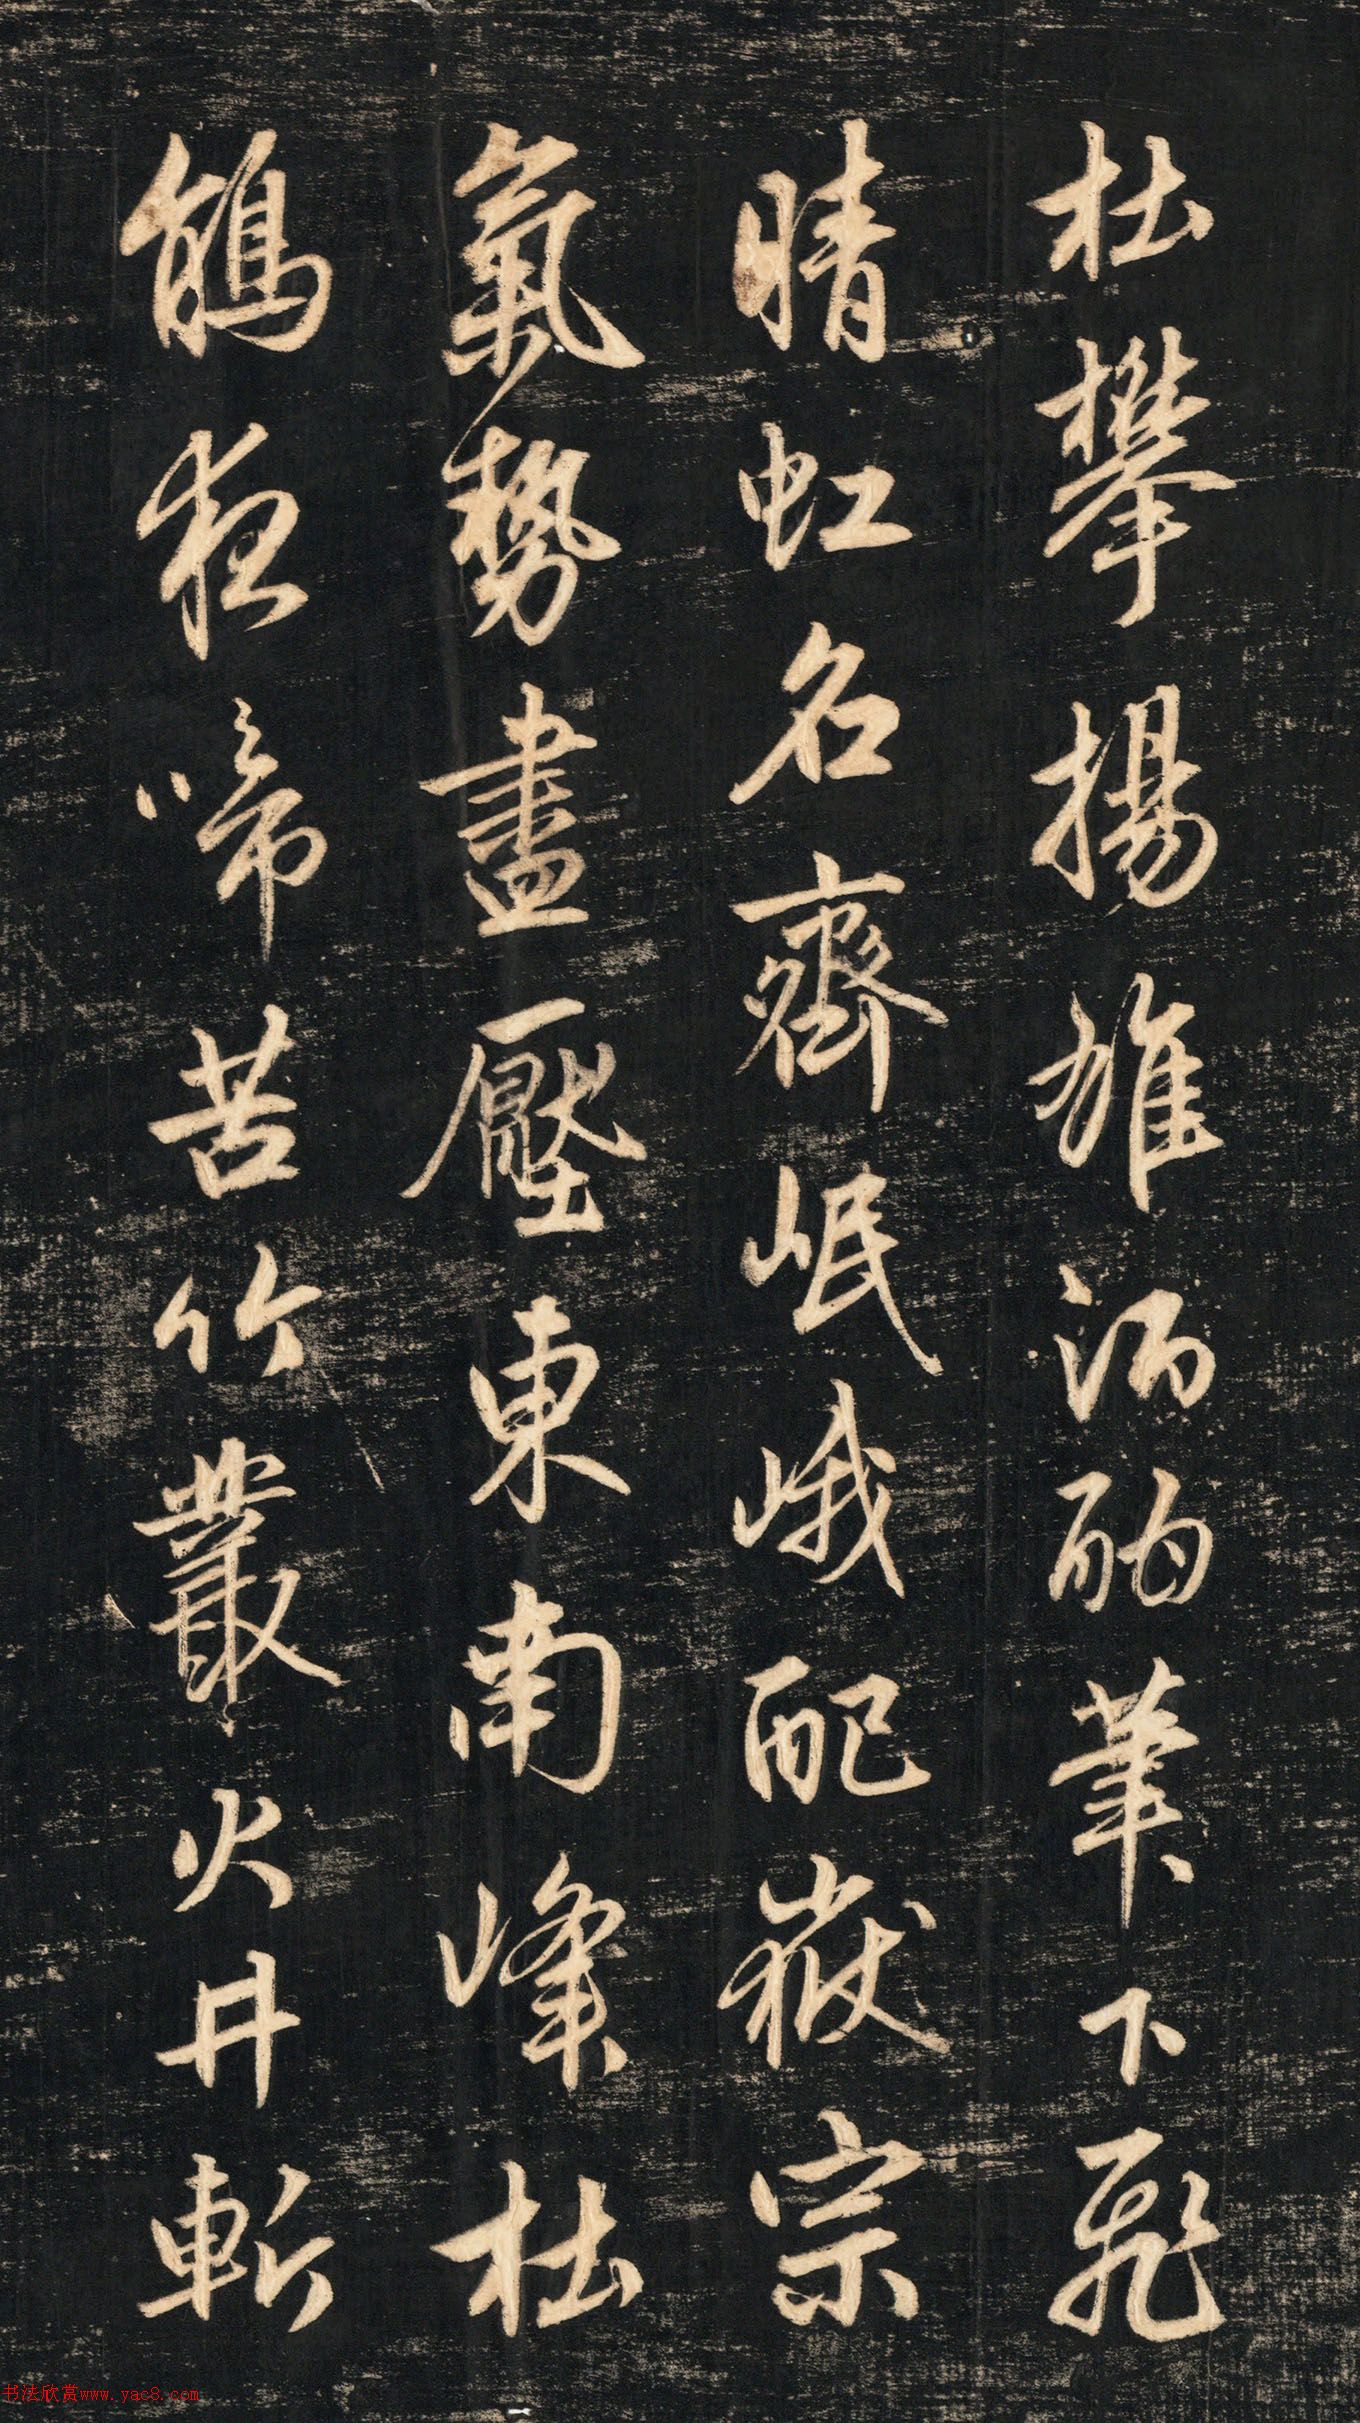 杜攀揚雄酒酣筆下飛
晴虹名齊岷峨配嶽宗
氣勢盡壓東南峰杜
鵑夜啼苦竹叢火井斬
书法欣赏www.yac8.com